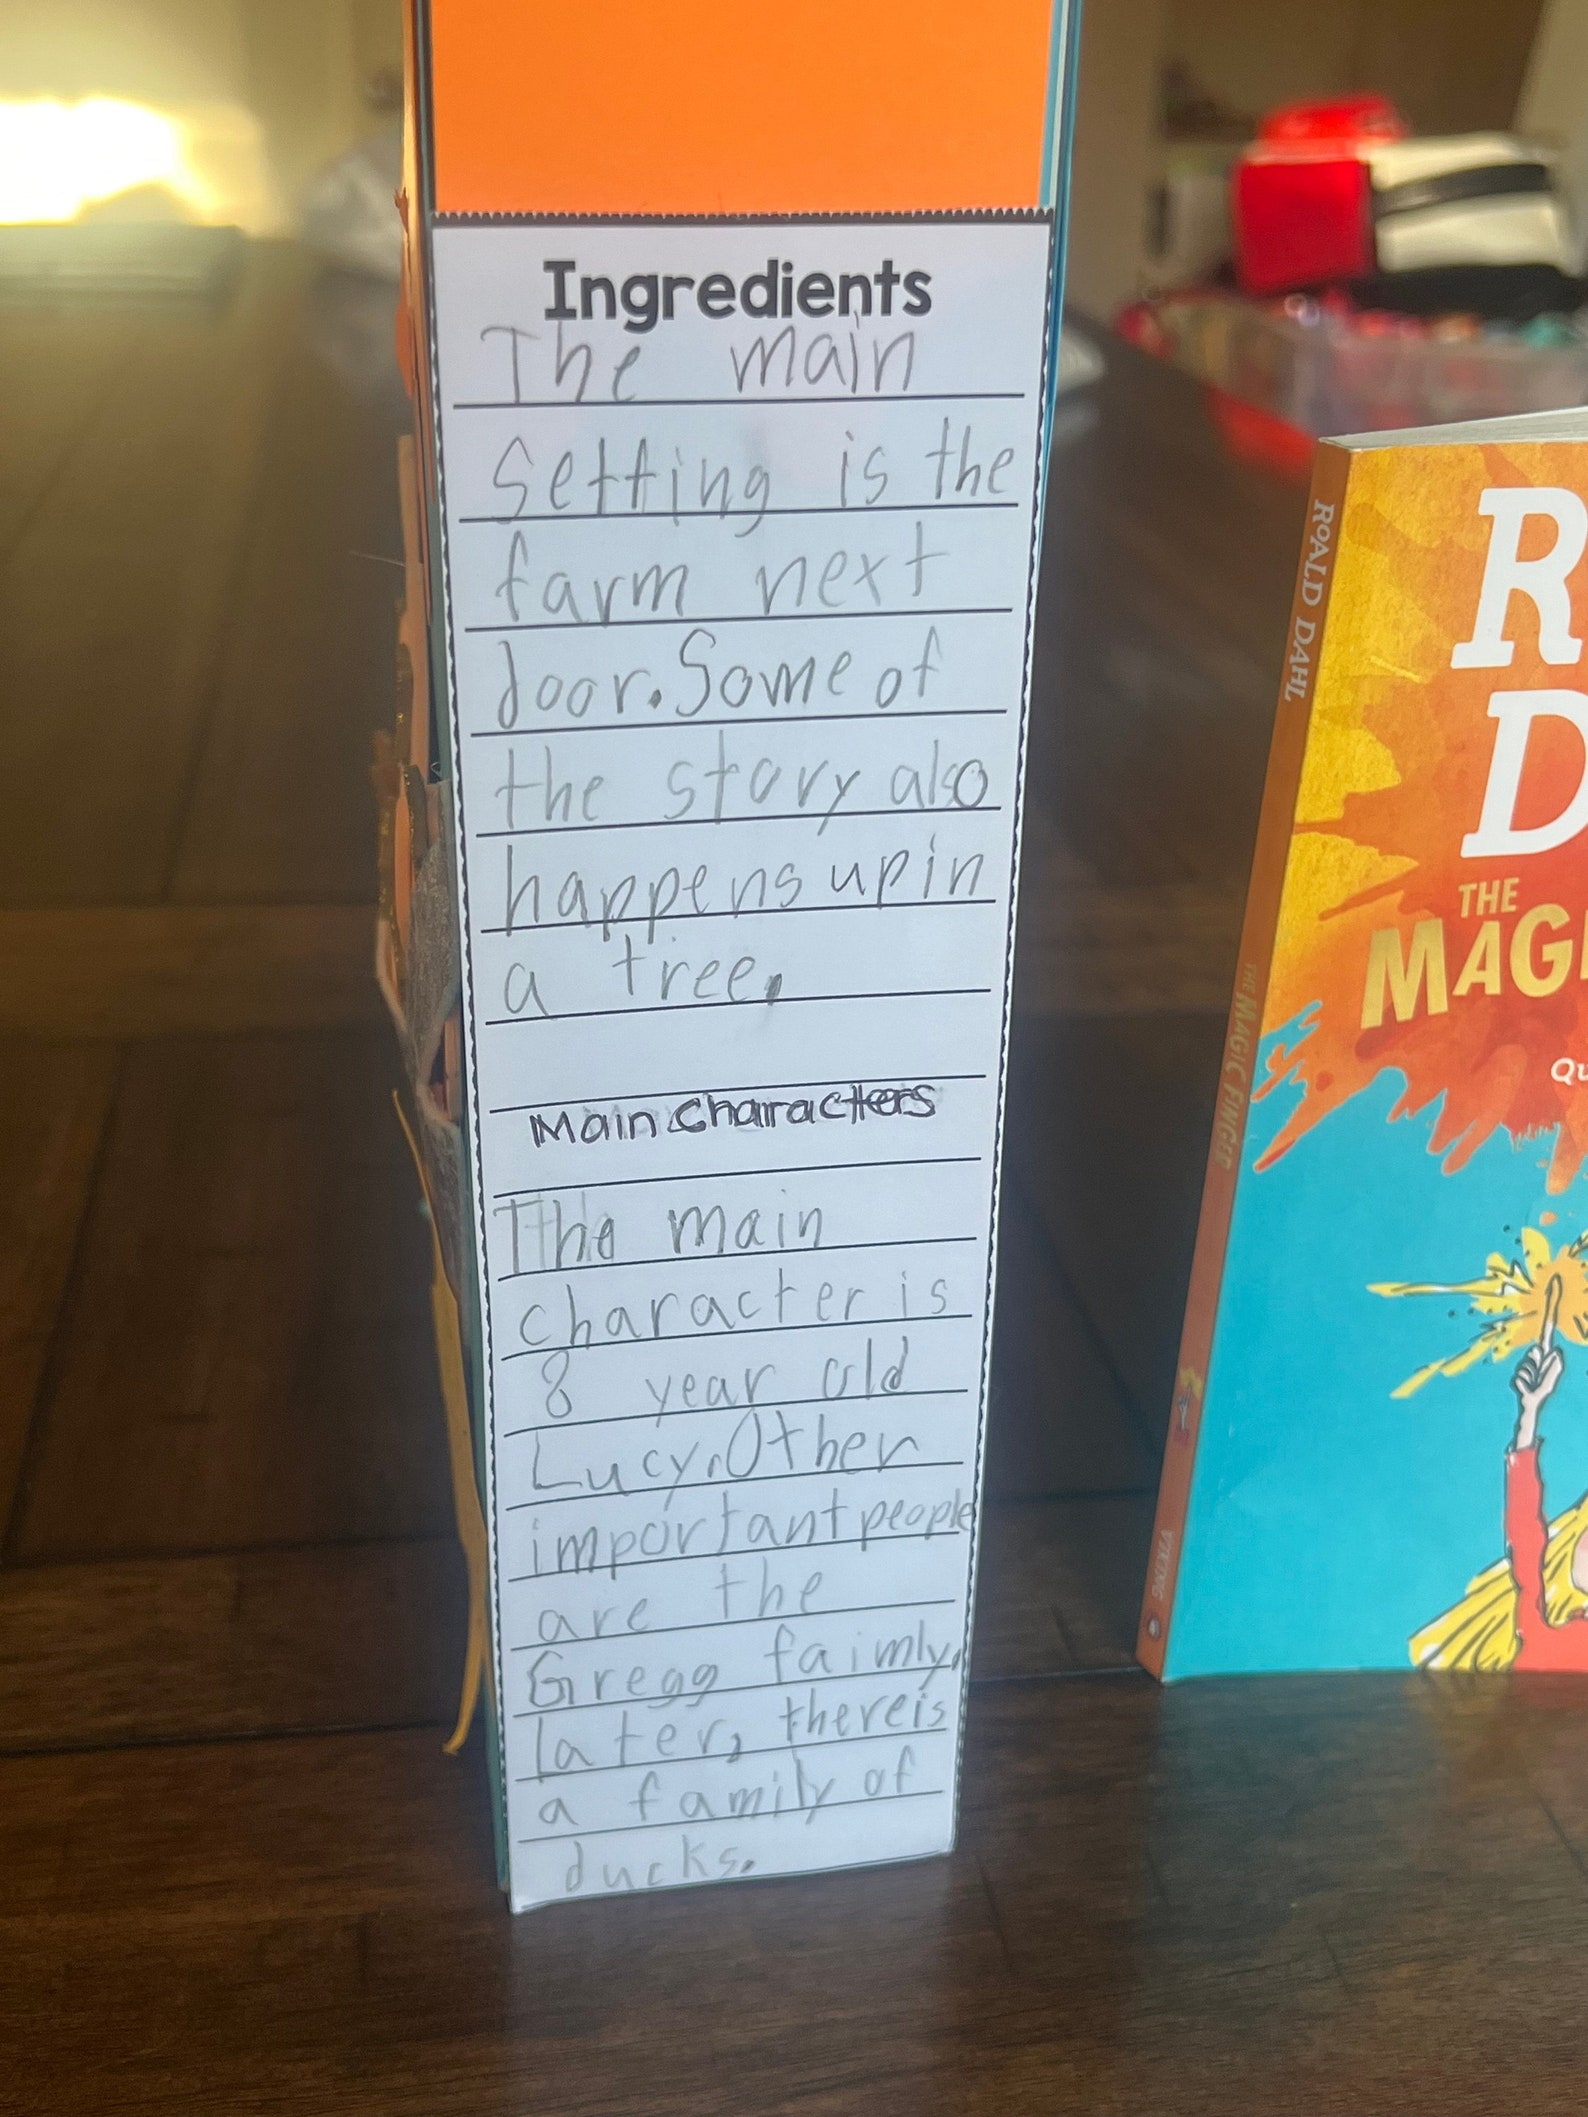 Ingredients
The main
Setting is the
farm next
door. Some of
the story also
happens up in
a tree.
Main Characters
The main
character is
8 year old
Lucy. Other
important people
are the
Gregg faimly.
later, there is
a family of
ducks.
ROALD DAHL
THE MAGIC FINGER
VIKING
R
D
THE
MAGI
Qu